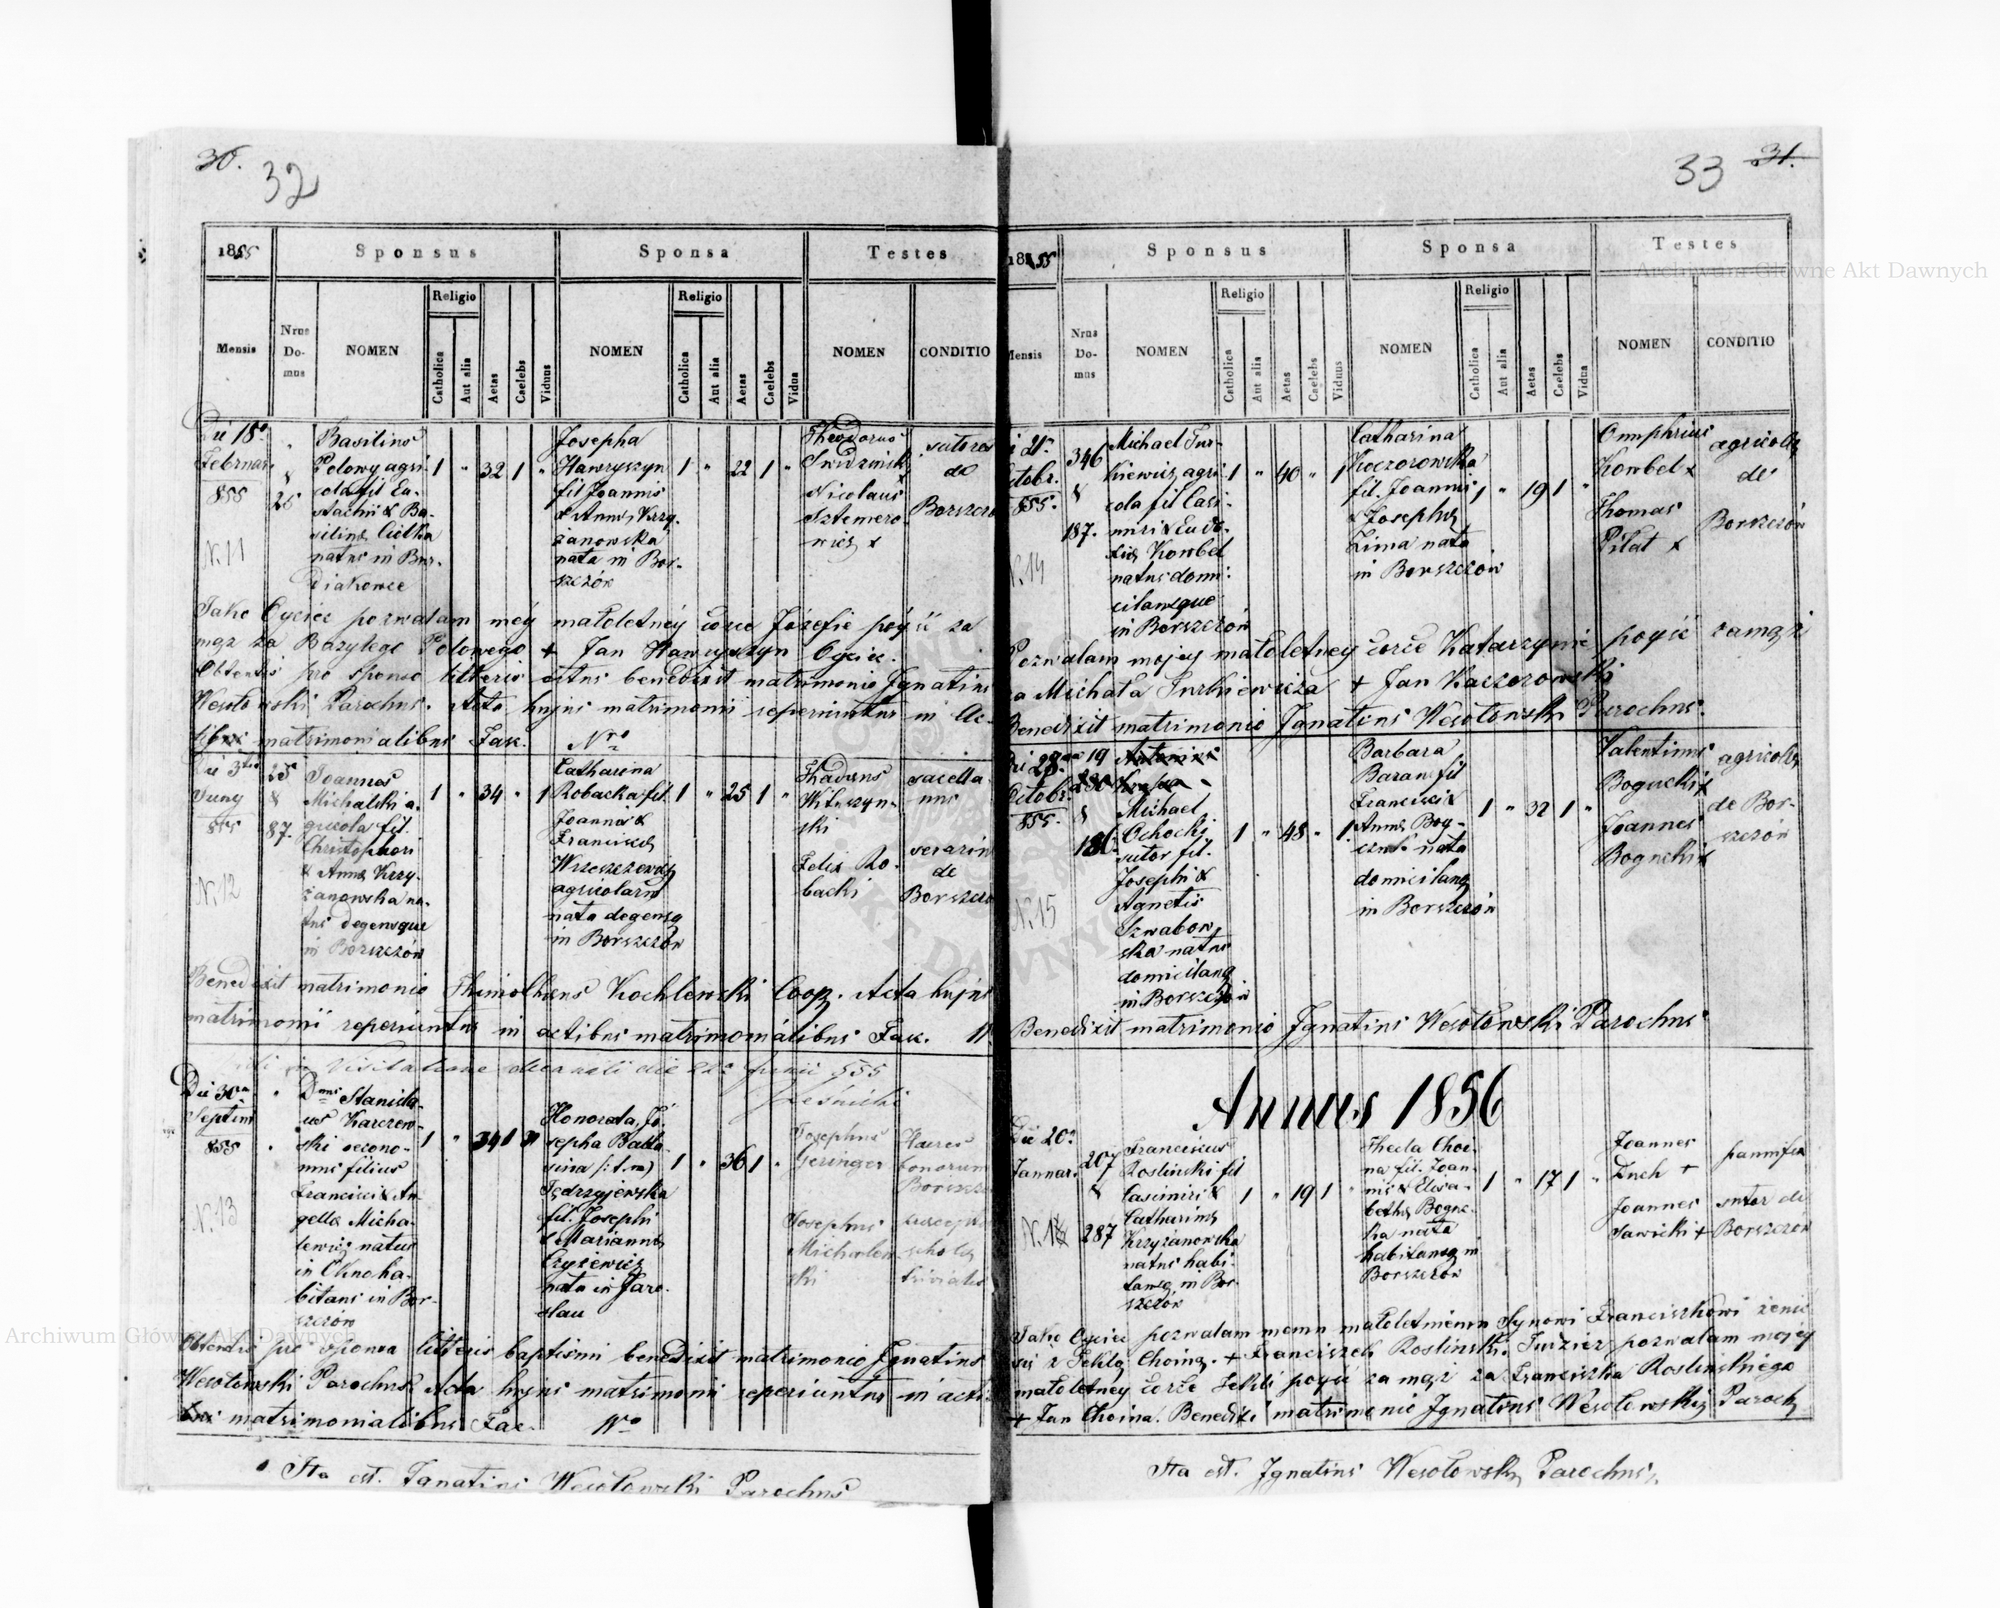 30.
32
1855
Sponsus
Sponsa
Testes
Mensis
Nrus Domus
NOMEN
Religio
Catholica
Aut alia
Aetas
Caelebs
Viduus
NOMEN
Religio
Catholica
Aut alia
Aetas
Caelebs
Vidua
NOMEN
CONDITIO
Die 18a
Februar.
855
N. 11
&
25
Basilius
Polowy agri
cola fil Eu-
stachii & Ba-
siliae Cielka
natus in Bur-
diakowce
1 " 32 1 "
Josepha
Hawryszyn
fil Joannis
& Annae Krzy-
zanowska
nata in Bor-
szczów
1 " 22 1 "
Theodorus
Swidzinski
Nicolaus
Sztemero-
wicz x
sutores
de
Borszczo
Jako Oyciec pozwalam méy małoletnéy córce Józefie pójść za
mąż za Bazylego Polowego + Jan Hawryszyn Oyciec.
Obtentis pro sponso litteris benedixit matrimonio Ignatius
Wesołowski Parochus. Acta hujus matrimonii reperiuntur in Ac-
tibus matrimonialibus Fasc. Nro
Die 3tia
Juny
855
N. 12
25
&
87.
Joannes
Michalski a-
gricola fil.
Christophori
& Annae Krzy-
zanowska na-
tus degensque
in Borszczów
1 " 34 " 1
Catharina
Robacka fil.
Joannis &
Franciscae
Wrzeszczowska
agricolarum
nata degensq
in Borszczów
1 " 25 1 "
Thadeus
Wituszyn-
ski
Felix Ro-
backi
sacella-
nus
serarius
de
Borszczo
Benedixit matrimonio Thimotheus Kochlewski Coop. Acta hujus
matrimonii reperiuntur in actibus matrimonialibus Fasc. N
in Visitatione decanali die 22a Junii 855
Leśnicki
Die 30a
Septem
855
N. 13
Dnus Stanisla-
us Karczew-
ski oecono-
mus filius
Francisci & An-
gelae Micha-
lewicz natus
in Okno ha-
bitans in Bor-
szczów
1 " 34 1
Honorata Jo-
sepha Balbi-
sina (:t.n:)
Jędrzejewska
fil. Josephi
& Mariannae
Czyżewicz
nata in Jaro-
slau
1 " 36 1 "
Josephus
Geringer
Josephus
Michalew-
ski
Haeres
bonorum
Borszczo
scholae
trivialis
Obtentis pro sponsa litteris baptismi benedixit matrimonio Ignatius
Wesołowski Parochus Acta hujus matrimonii reperiuntur in acti-
bus matrimonialibus Fasc. Nro
Ita est. Ignatius Wesołowski Parochus
31.
33
1855
Sponsus
Sponsa
Testes
Mensis
Nrus Domus
NOMEN
Religio
Catholica
Aut alia
Aetas
Caelebs
Viduus
NOMEN
Religio
Catholica
Aut alia
Aetas
Caelebs
Vidua
NOMEN
CONDITIO
Octobr.
855.
N. 14
346
&
187.
Michael Tur-
kiewicz agri
cola fil Casi-
miri & Eudo-
xiae Kowbel
natus domi-
cilansque
in Borszczów
1 " 40 " 1
Catharina
Kaczorowska
fil. Joannis
& Josephae
Zima nata
in Borszczów
1 " 19 1 "
Onuphrius
Kowbel x
Thomas
Pilat x
agricolae
de
Borszczów
Pozwalam mojey małoletney córce Katarzynie pójść zamąż
za Michała Turkiewicza + Jan Kaczorowski
Benedixit matrimonio Ignatius Wesołowski Parochus.
Octobr.
855.
N. 15
280
&
Michael
Ochocki
sutor fil.
Josephi &
Agnetis
Szwabow-
ska natus
domicilansq
in Borszczów
1 " 48 " 1
Barbara
Baran fil
Francisci &
Annae Bog-
nata
domicilansq
in Borszczów
1 " 32 1 "
Valentinus
Bogucki x
Joannes
Bogucki x
agricolae
de Bor-
szczów
Benedixit matrimonio Ignatius Wesołowski Parochus
Annus 1856
Die 20a
Januar.
207
&
287
Franciscus
Roslinski fil
Casimiri &
Catharinae
Krzyzanowska
natus habi-
tansq in Bor-
szczów
1 " 19 1 "
Thecla Choi-
na fil. Joan-
nis & Elisa-
bethae Bogu-
cka nata
habitansq in
Borszczów
1 " 17 1 "
Joannes
Zuch +
Joannes
Sawicki +
pannifex
sutor de
Borszczów
Jako Oyciec pozwalam memu małoletniemu Synowi Franciszkowi żenić
się z Teklą Choiną. + Franciszek Roslinski. Tudzież pozwalam mojey
małoletney córce Tekli pójść za mąż za Franciszka Roslinskiego
+ Jan Choina. Benedixi matrimonio Ignatius Wesołowski Paroch
Ita est. Ignatius Wesołowski Parochus.
Archiwum Główne Akt Dawnych
Archiwum Główne Akt Dawnych